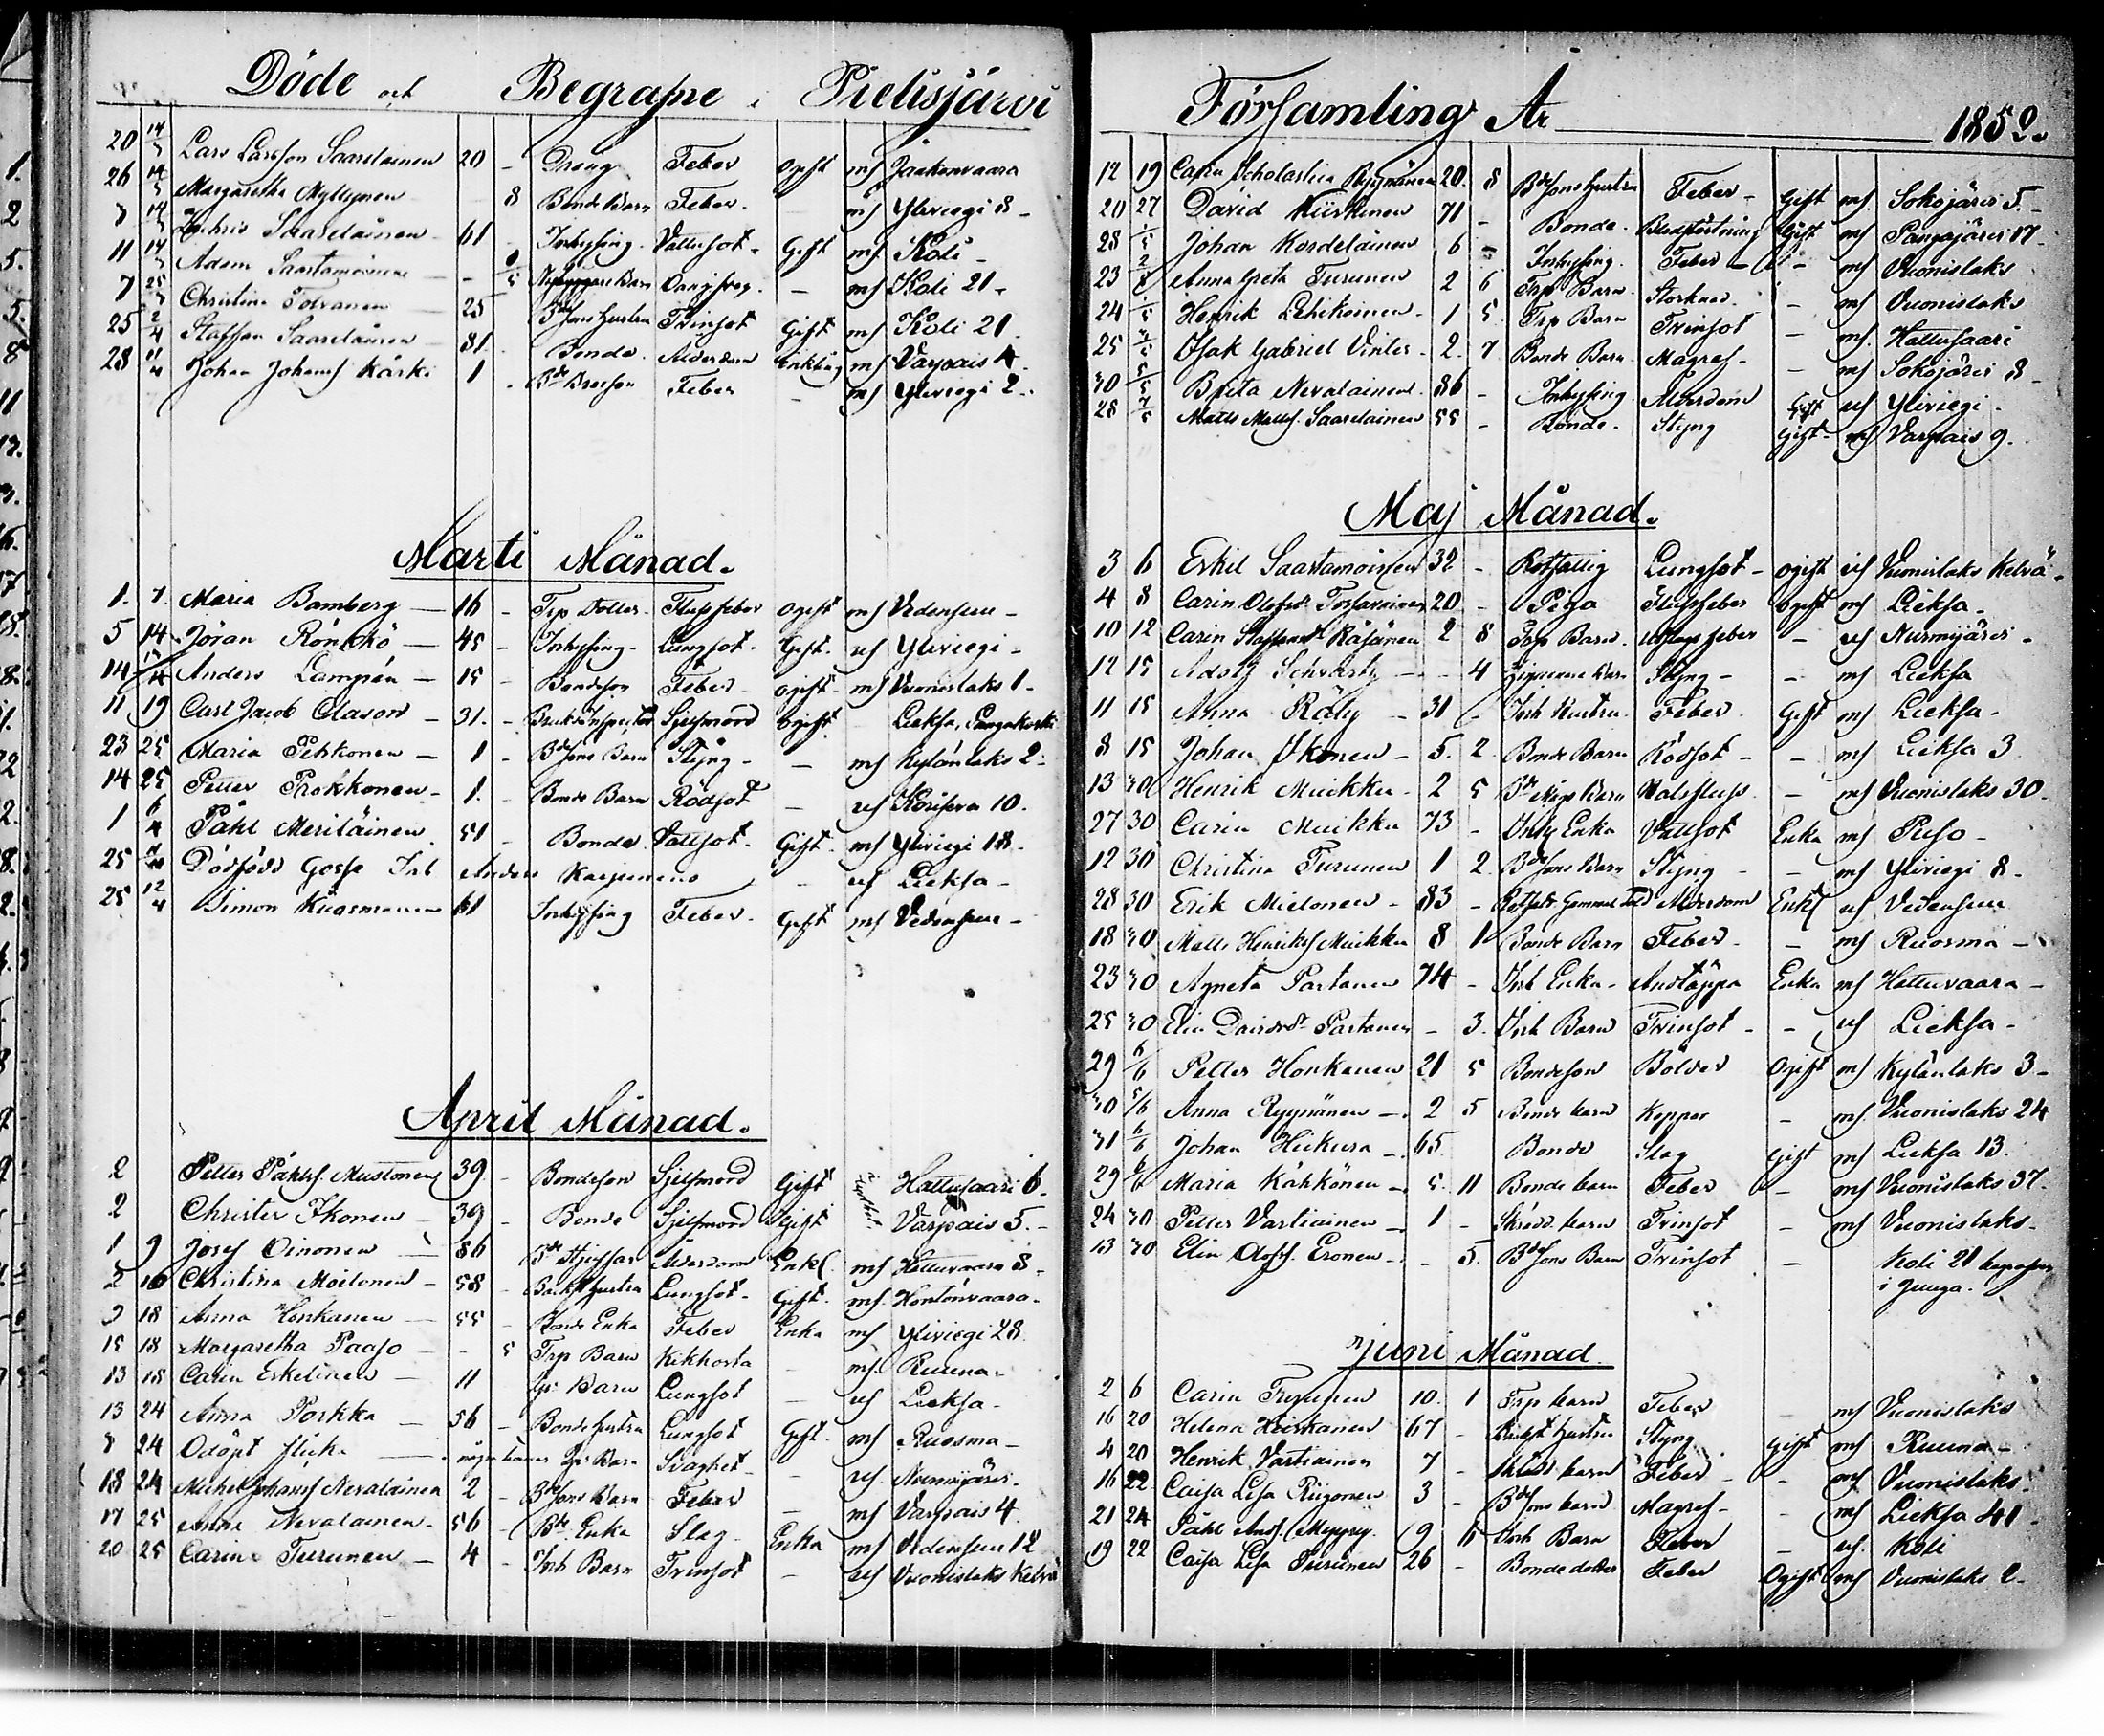 Döde och Begrafne i Pielisjärvi
20 14/3 Lars Larsson Saarelainen 20 - Dreng Feber ogift mf Jaakonvaara
26 14/3 Margaretha Myllynen 8 Bonde Barn Feber - mf Yliviegi 8 -
14/3 Saarelainen 61 - Inhysing Vattusot Gift mf Koli -
11 14/3 Adam Saastamoinen - Nybyggare Barn - mf Koli 21 -
7 25/3 Christina Tolvanen 25 Bdesons hustru Tvinsot Gift mf Koli 21
25 2/4 Staffan Saarelainen 81 Bonde Ålderdom Enkling mf Varpais 4
28 11/4 Johan Johansf Kärki 1 - Feber - mf Yliviegi 2 -
Marti Månad.
1. 7. Maria Bamberg - 16 - Trp Dotter Flussfeber ogift mf Vedensuu -
5 14 Jöran Rönkkö - 45 - Inhysing Lungsot Gift uf Yliviegi -
14 Anders Lampén - 15 - Bondeson Feber ogift mf Vuonislaks 1 -
11 19 Carl Jacob Clason - 31. - Bruks Inspector Sjelfmord ogift Lieksa, Pangakoski
23 25 Maria Pehkonen - 1 - Bdesons Barn Styng - - mf Kylänlaks 2 -
14 25 Petter Prokkonen - 1. - Bonde Barn Rödsot - uf 10.
1 6/4 Påhl Meriläinen 51 - Bonde Vattsot Gift mf Yliviegi 18.
25 Dödfödd Gosse Inh Anders - uf Lieksa -
25 12/4 Simon Kuosmanen 61 Inhysing Feber Gift mf Vedensuu -
April Månad.
2 Petter Påhlsf. Mustonen 39 - Bondeson Sjelfmord Gift Hattusaari 6.
2 Christer Ikonen 39 - Bonde Sjelfmord Gift Varpais 5. -
1 9 Josef Oinonen - 86 Ålderdom Enkl. mf Hattuvaara 8 -
2 16 Christina Moilonen - 58 - hustru Lungsot - Gift mf. Höntönvaara -
18 Anna Honkanen - 55 - Bonde Enka Feber Enka mf Yliviegi 28
15 18 Margaretha Paaso - - 5 Trp Barn Kikhosta - mf. Ruuna -
13 18 Carin Eskelinen - 11 Barn Lungsot - uf Lieksa -
13 24 Anna Porkka - 56 - Bonde hustru Lungsot Gift mf Ruosma -
24 Odöpt flicka - Barn Svaghet - - uf. Nurmijärvi -
18 24 Michel Johansf Nevalainen 2 - Bdesons Barn Feber - mf Varpais 4.
17 25 Anna Nevalainen - 56 - Bde Enka Slag - Enka mf Vedensuu 12
20 25 Carin Turunen - 4 - Inh Barn Tvinsot - uf Vuonislaks Kelvä
Församling År 1852.
12 19 Carin Scholastica Ryynänen 20. 8 Bdesons hustru Feber - Gift mf. Sokojärvi 5. -
20 27 David Kiiskinen 71 - Bonde - Blodstörtning Gift mf Pangajärvi 17 -
28 1/5 Johan Kordelainen 6 - Inhysing Feber - - mf Vuonislaks
23 2/5 Anna Greta Turunen 2 6 Trp Barn - mf Vuonislaks
24 Henrik Lehikoinen - 1 5 Trp Barn Tvinsot - mf. Hattusaari
25 Isak Gabriel Vinter - 2. 7 Bonde Barn Magref - - mf Sokojärvi 8 -
30 5/5 Brita Nevalainen - 86 - Inhysing Ålderdom uf Yliviegi -
28 7/5 Matts Mattsf. Saarelainen 55 - Bonde - Styng Gift - mf Varpais 9.
Maj Månad.
3 6 Eskil Saastamoinen 32 - Rotfattig Lungsot - ogift uf Vuonislaks Kelvä -
4 8 Carin Olofsdr 20 - Piga Flussfeber ogift mf Lieksa -
10 12 Carin Räsänen 2 8 Trp Barn - uf Nurmijärvi -
12 15 Adolf Schvartz - - 4 Barn Styng - - mf Lieksa
11 15 Anna Räty - 31 - Inh Hustru Feber Gift mf Lieksa -
8 15 Johan Ikonen - 5. 2. Bonde Barn Rödsot - - mf Lieksa 3
13 30 Henrik Muikku - 2 5 Bde Barn Halsfluss - mf Vuonislaks 30 -
27 30 Carin Muikku 73 - Inhy Enka Vattsot Enka mf Puso -
12 30 Christina Turunen 1 2. Bdesons Barn Styng - - mf Yliviegi 8 -
28 30 Erik Mielonen - 83 - Ålderdom Enkl uf Vedensuu
18 30 Matts Henriksf Muikku 8 1 Bonde Barn Feber - - mf Ruosma -
23 30 Agneta Partanen 74 - Inh Enka - Andtäppa Enka mf Hattuvaara -
25 30 Elin Davidsdr Partanen - 3. Inh Barn Tvinsot - - uf Lieksa -
29 6/6 Petter Honkanen 21 5 Bondeson Bölder Ogift mf Kylänlaks 3 -
30 5/6 Anna Ryynänen - 2 5 Bonde barn Koppor - mf. Vuonislaks 24
31 6/6 Johan Heikura - 65. Bonde Slag Gift mf Lieksa 13.
29 6/6 Maria Kähkönen - 5. 11 Bonde barn Feber - mf Vuonislaks 37.
24 30 Petter Vartiainen - 1 - Skrädd. barn Tvinsot - mf Vuonislaks -
13 30 Elin Olofsf. Eronen - - 5. Bdesons Barn Tvinsot - Koli 21 begrafven
i Juuga.
Juni Månad
2 6 Carin Turunen 10. 1 Trp barn Feber - mf Vuonislaks
16 20 Helena 67 - hustru Styng Gift mf Ruuna -
4 20 Henrik Vartiainen 7 - Skrädd barn Feber - - mf Vuonislaks -
16 22 Caisa Lisa Piigonen 3 - Bdesons barn Magref - - mf Lieksa 41 -
21 24 Påhl 9 6 Inh Barn Feber - uf. Koli
19 22 Caisa Lisa Turunen 26 - Bonde dotter Feber Ogift mf Vuonislaks 2 -